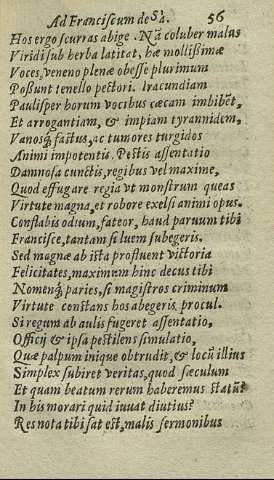 Ad Franciscum de Sà. 56
Hos ergo scurras abige. Nã coluber malus
Viridi sub herba latitat, hæ mollißimæ
Voces, veneno plenæ obesse plurimum
Poßunt tenello pectori. Iracundiam
Paulisper horum vocibus cæcam imbibēt,
Et arrogantiam, & impiam tyrannidem,
Vanosq́; fastus, ac tumores turgidos
Animi impotentis. Pestis assentatio
Damnosa cunctis, regibus vel maxime,
Quod effugare regia vt monstrum queas
Virtute magna, et robore excelsi animi opus.
Conflabis odium, fateor, haud paruum tibi
Francisce, tantam si luem subegeris.
Sed magnæ ab ista profluent victoria
Felicitates, maximum hinc decus tibi
Nomenq́; paries, si magistros criminum
Virtute constans hos abegeris procul.
Si regum ab aulis fugeret assentatio,
Officij & ipsa pestilens simulatio,
Quæ palpum inique obtrudit, & locũ illius
Simplex subiret veritas, quod sæculum
Et quam beatum rerum haberemus statũ?
In his morari quid iuuat diutius?
Res nota tibi sat est, malis sermonibus